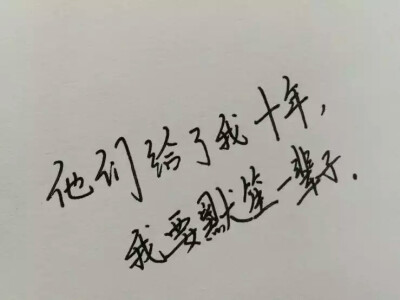 他们给了我十年,
我要默笙一辈子.